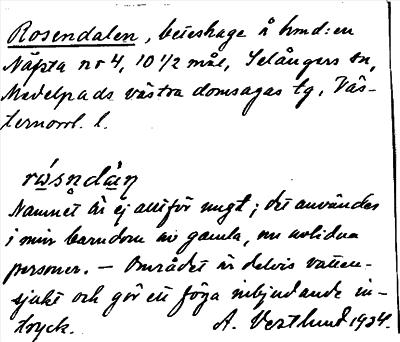 Rosendalen, beteshage å hmd:en
Näfsta nr 4, 10 1/2 mål, Selångers sn,
Medelpads västra domsagas tg, Väs-
ternorrl. l.
Namnet är ej alltför ungt; det användes
i min barndom av gamla, nu avlidna
personer. – Området är delvis vatten-
sjukt och gör ett föga inbjudande in-
tryck. A. Vestlund 1934.